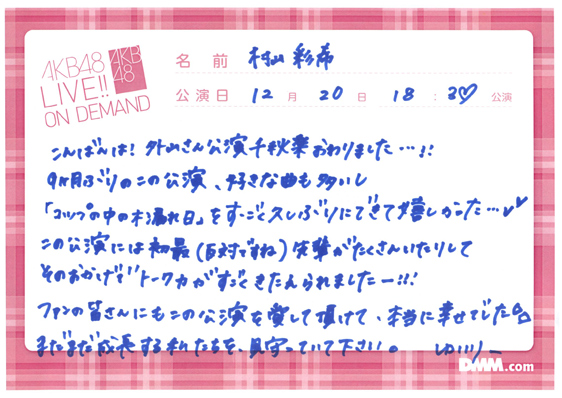 AKB48
LIVE!!
ON DEMAND
AKB
48
名前 村山 彩希
公演日 12月 20日 18:30♡ 公演
こんばんは! 外山さん公演千秋楽おわりました…!!
9ヶ月ぶりのこの公演、好きな曲も多いし
「コップの中の木漏れ日」をすごく久しぶりにできて嬉しかった…
この公演には初最(反対ですね)先輩がたくさんいたりして
そのおかげで トーク力がすごくきたえられましたー!!!
ファンの皆さんにもこの公演を愛して頂けて、本当に幸せでした
まだまだ成長する私たちを、見守っていて下さい。 ゆいりー
DMM.com